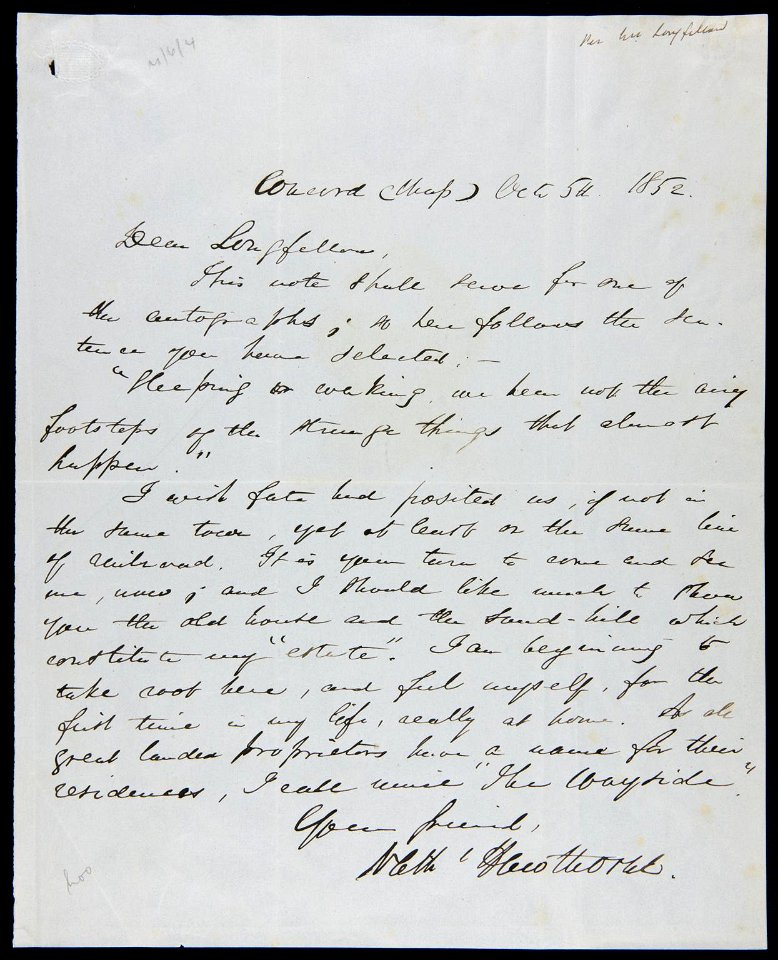 Per Mr. Longfellow
Concord (Mass) Oct 5th. 1852.
Dear Longfellow,
This note shall serve for one of
the autographs; so here follows the sen-
tence you have selected; —
"Sleeping or waking, we hear not the airy
footsteps of the strange things that almost
happen."
I wish fate had posited us, if not in
the same town, yet at least on the same line
of railroad. It is your turn to come and see
me, now; and I should like much to show
you the old house and the sand-hill which
constitute my "estate". I am beginning to
take root here, and feel myself, for the
first time in my life, really at home. As all
great landed proprietors have a name for their
residences, I call mine "The Wayside."
Your friend,
Nathl Hawthorne.